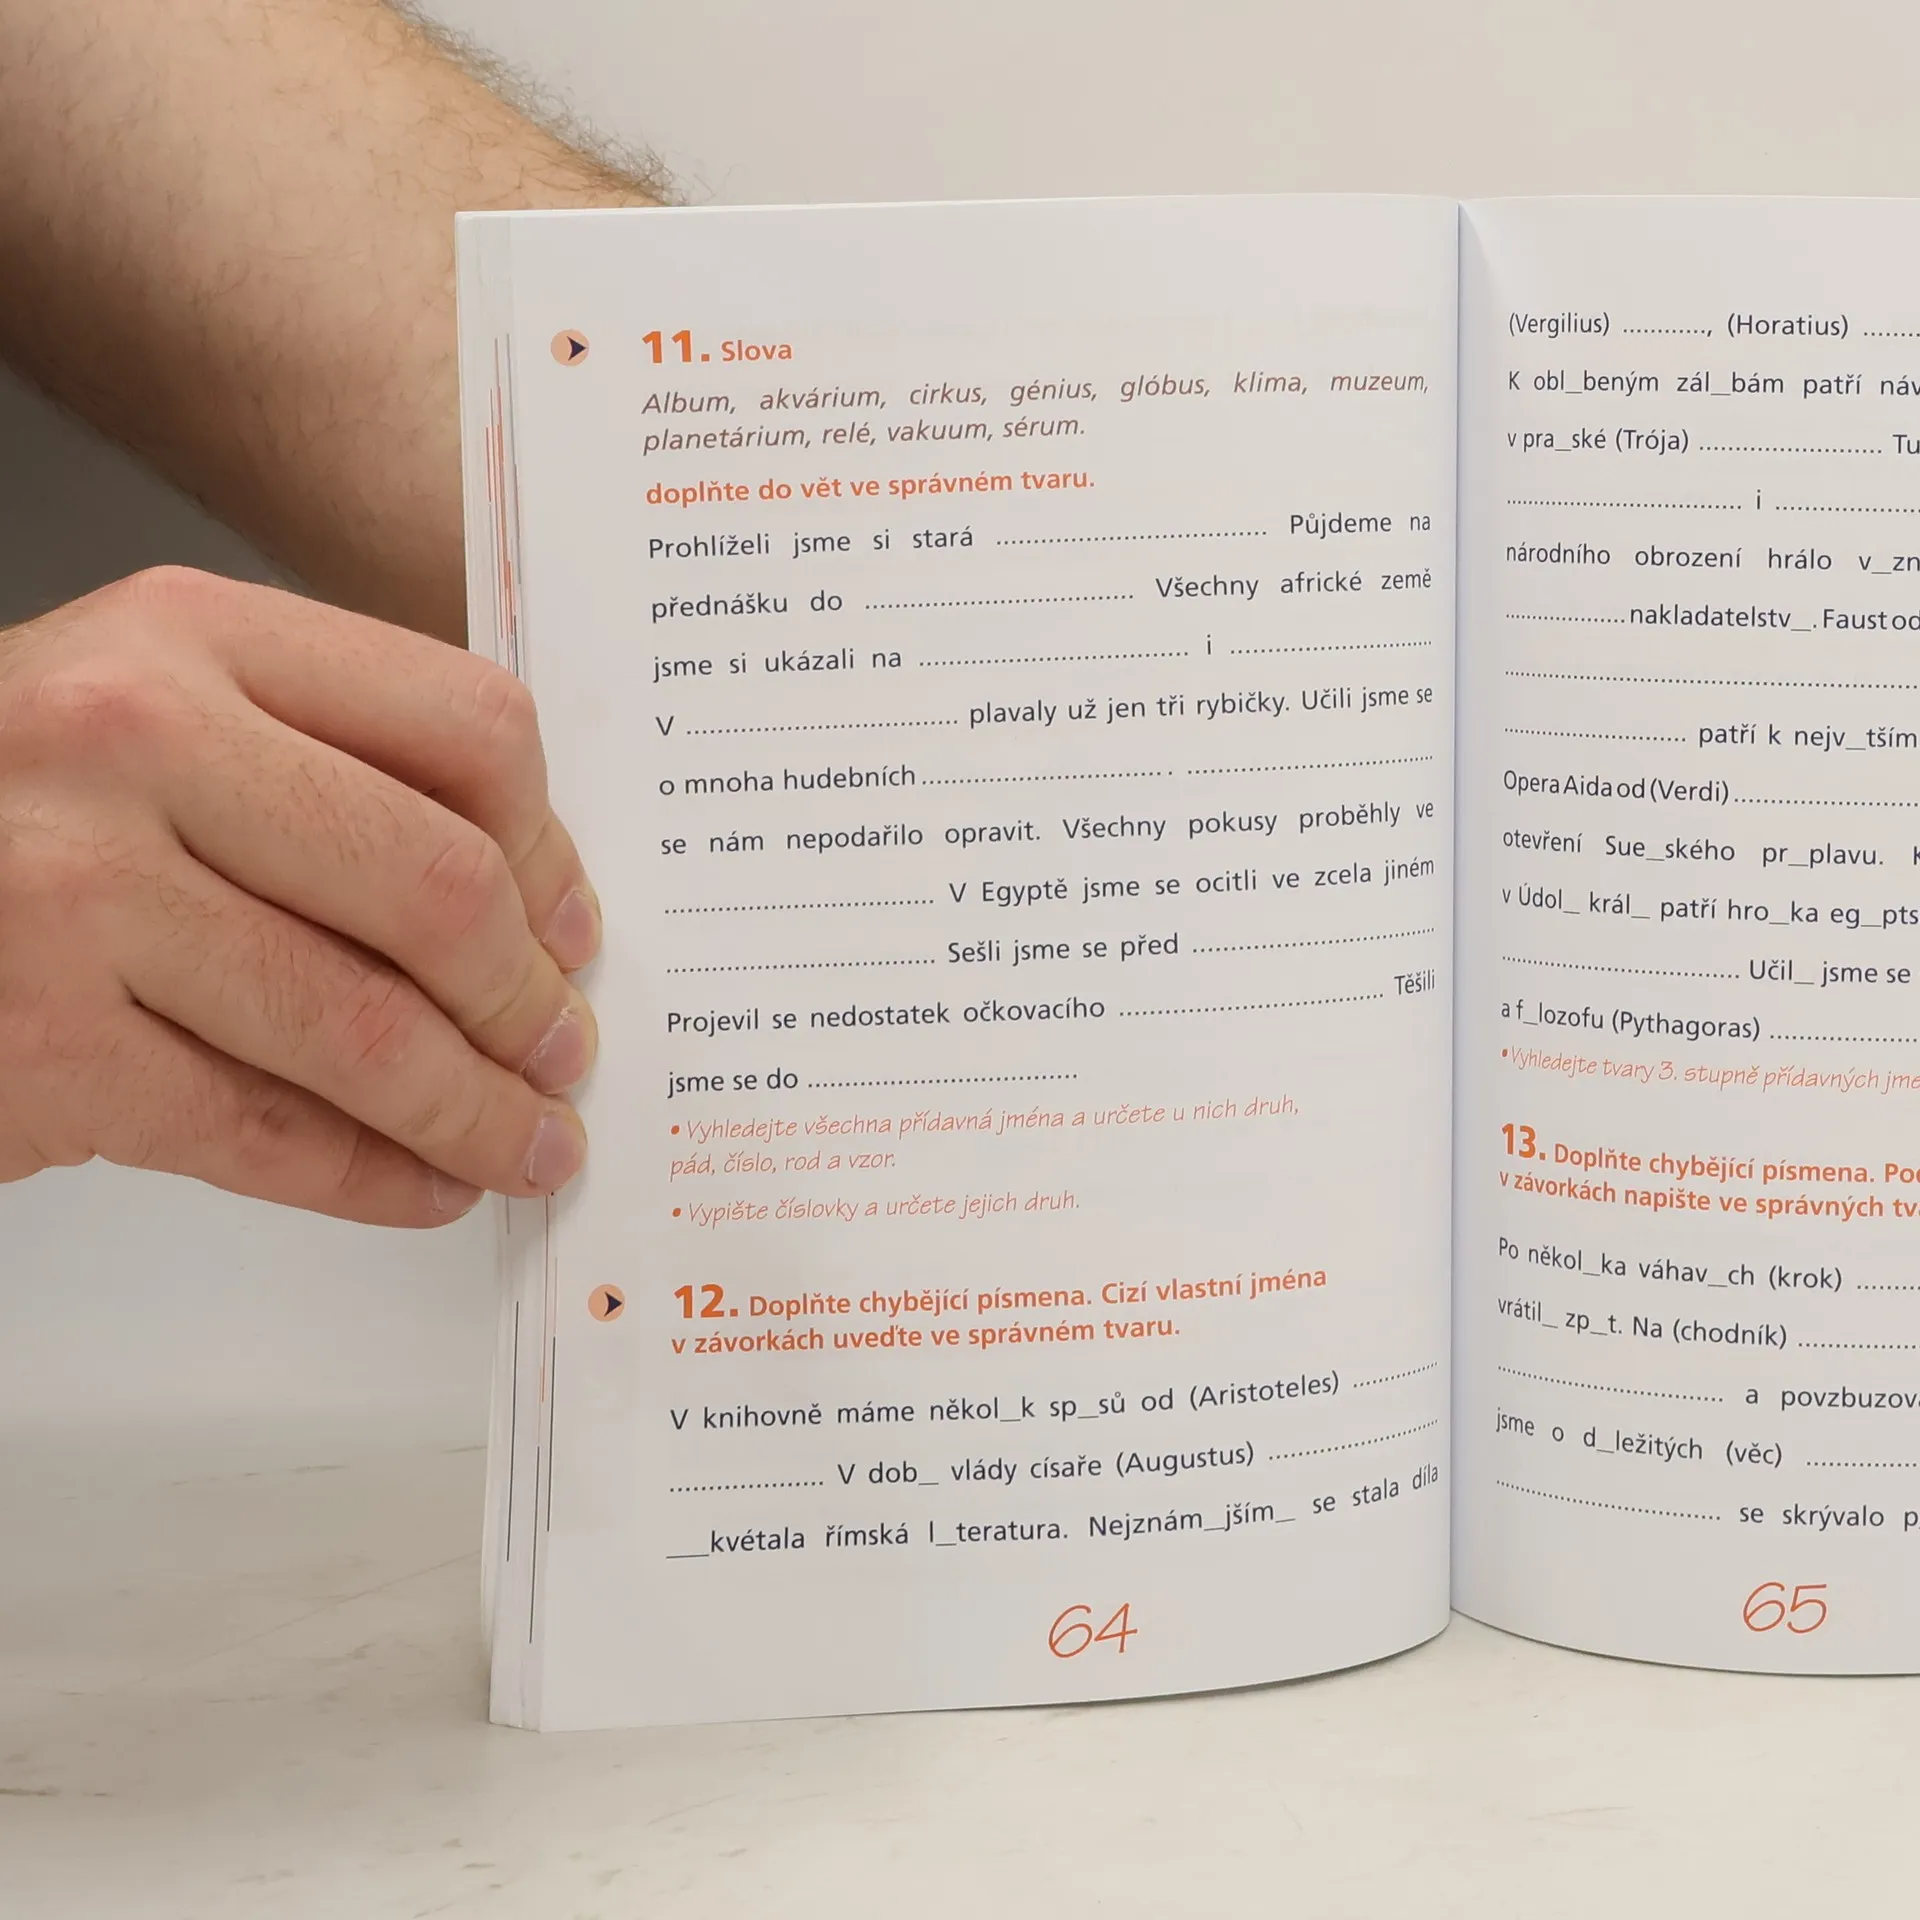 11. Slova
Album, akvárium, cirkus, génius, glóbus, klima, muzeum,
planetárium, relé, vakuum, sérum.
doplňte do vět ve správném tvaru.
Prohlíželi jsme si stará .................................. Půjdeme na
přednášku do .................................. Všechny africké země
jsme si ukázali na .................................. i ..........................
V .................................. plavaly už jen tři rybičky. Učili jsme se
o mnoha hudebních ................................ . ................................
se nám nepodařilo opravit. Všechny pokusy proběhly ve
.................................. V Egyptě jsme se ocitli ve zcela jiném
.................................. Sešli jsme se před ..............................
Projevil se nedostatek očkovacího .................................. Těšili
jsme se do ..................................
• Vyhledejte všechna přídavná jména a určete u nich druh,
pád, číslo, rod a vzor.
• Vypište číslovky a určete jejich druh.
12. Doplňte chybějící písmena. Cizí vlastní jména
v závorkách uveďte ve správném tvaru.
V knihovně máme někol_k sp_sů od (Aristoteles) ............
.................... V dob_ vlády císaře (Augustus) ......................
___kvétala římská l_teratura. Nejznám_jším_ se stala díla
64
(Vergilius) ............, (Horatius) .......
K obl_beným zál_bám patří náv
v pra_ské (Trója) ........................ Tu
.............................. i ..................
národního obrození hrálo v_zn
................nakladatelstv_. Faust od
......................................................
........................ patří k nejv_tším
Opera Aida od (Verdi)........................
otevření Sue_ského pr_plavu. K
v Údol_ král_ patří hro_ka eg_pts
.............................. Učil_ jsme se
a f_lozofu (Pythagoras) ...................
• Vyhledejte tvary 3. stupně přídavných jme
13. Doplňte chybějící písmena. Po
v závorkách napište ve správných tv
Po někol_ka váhav_ch (krok) ........
vrátil_ zp_t. Na (chodník) ...............
.............................. a povzbuzov
jsme o d_ležitých (věc) ..............
.............................. se skrývalo p
65